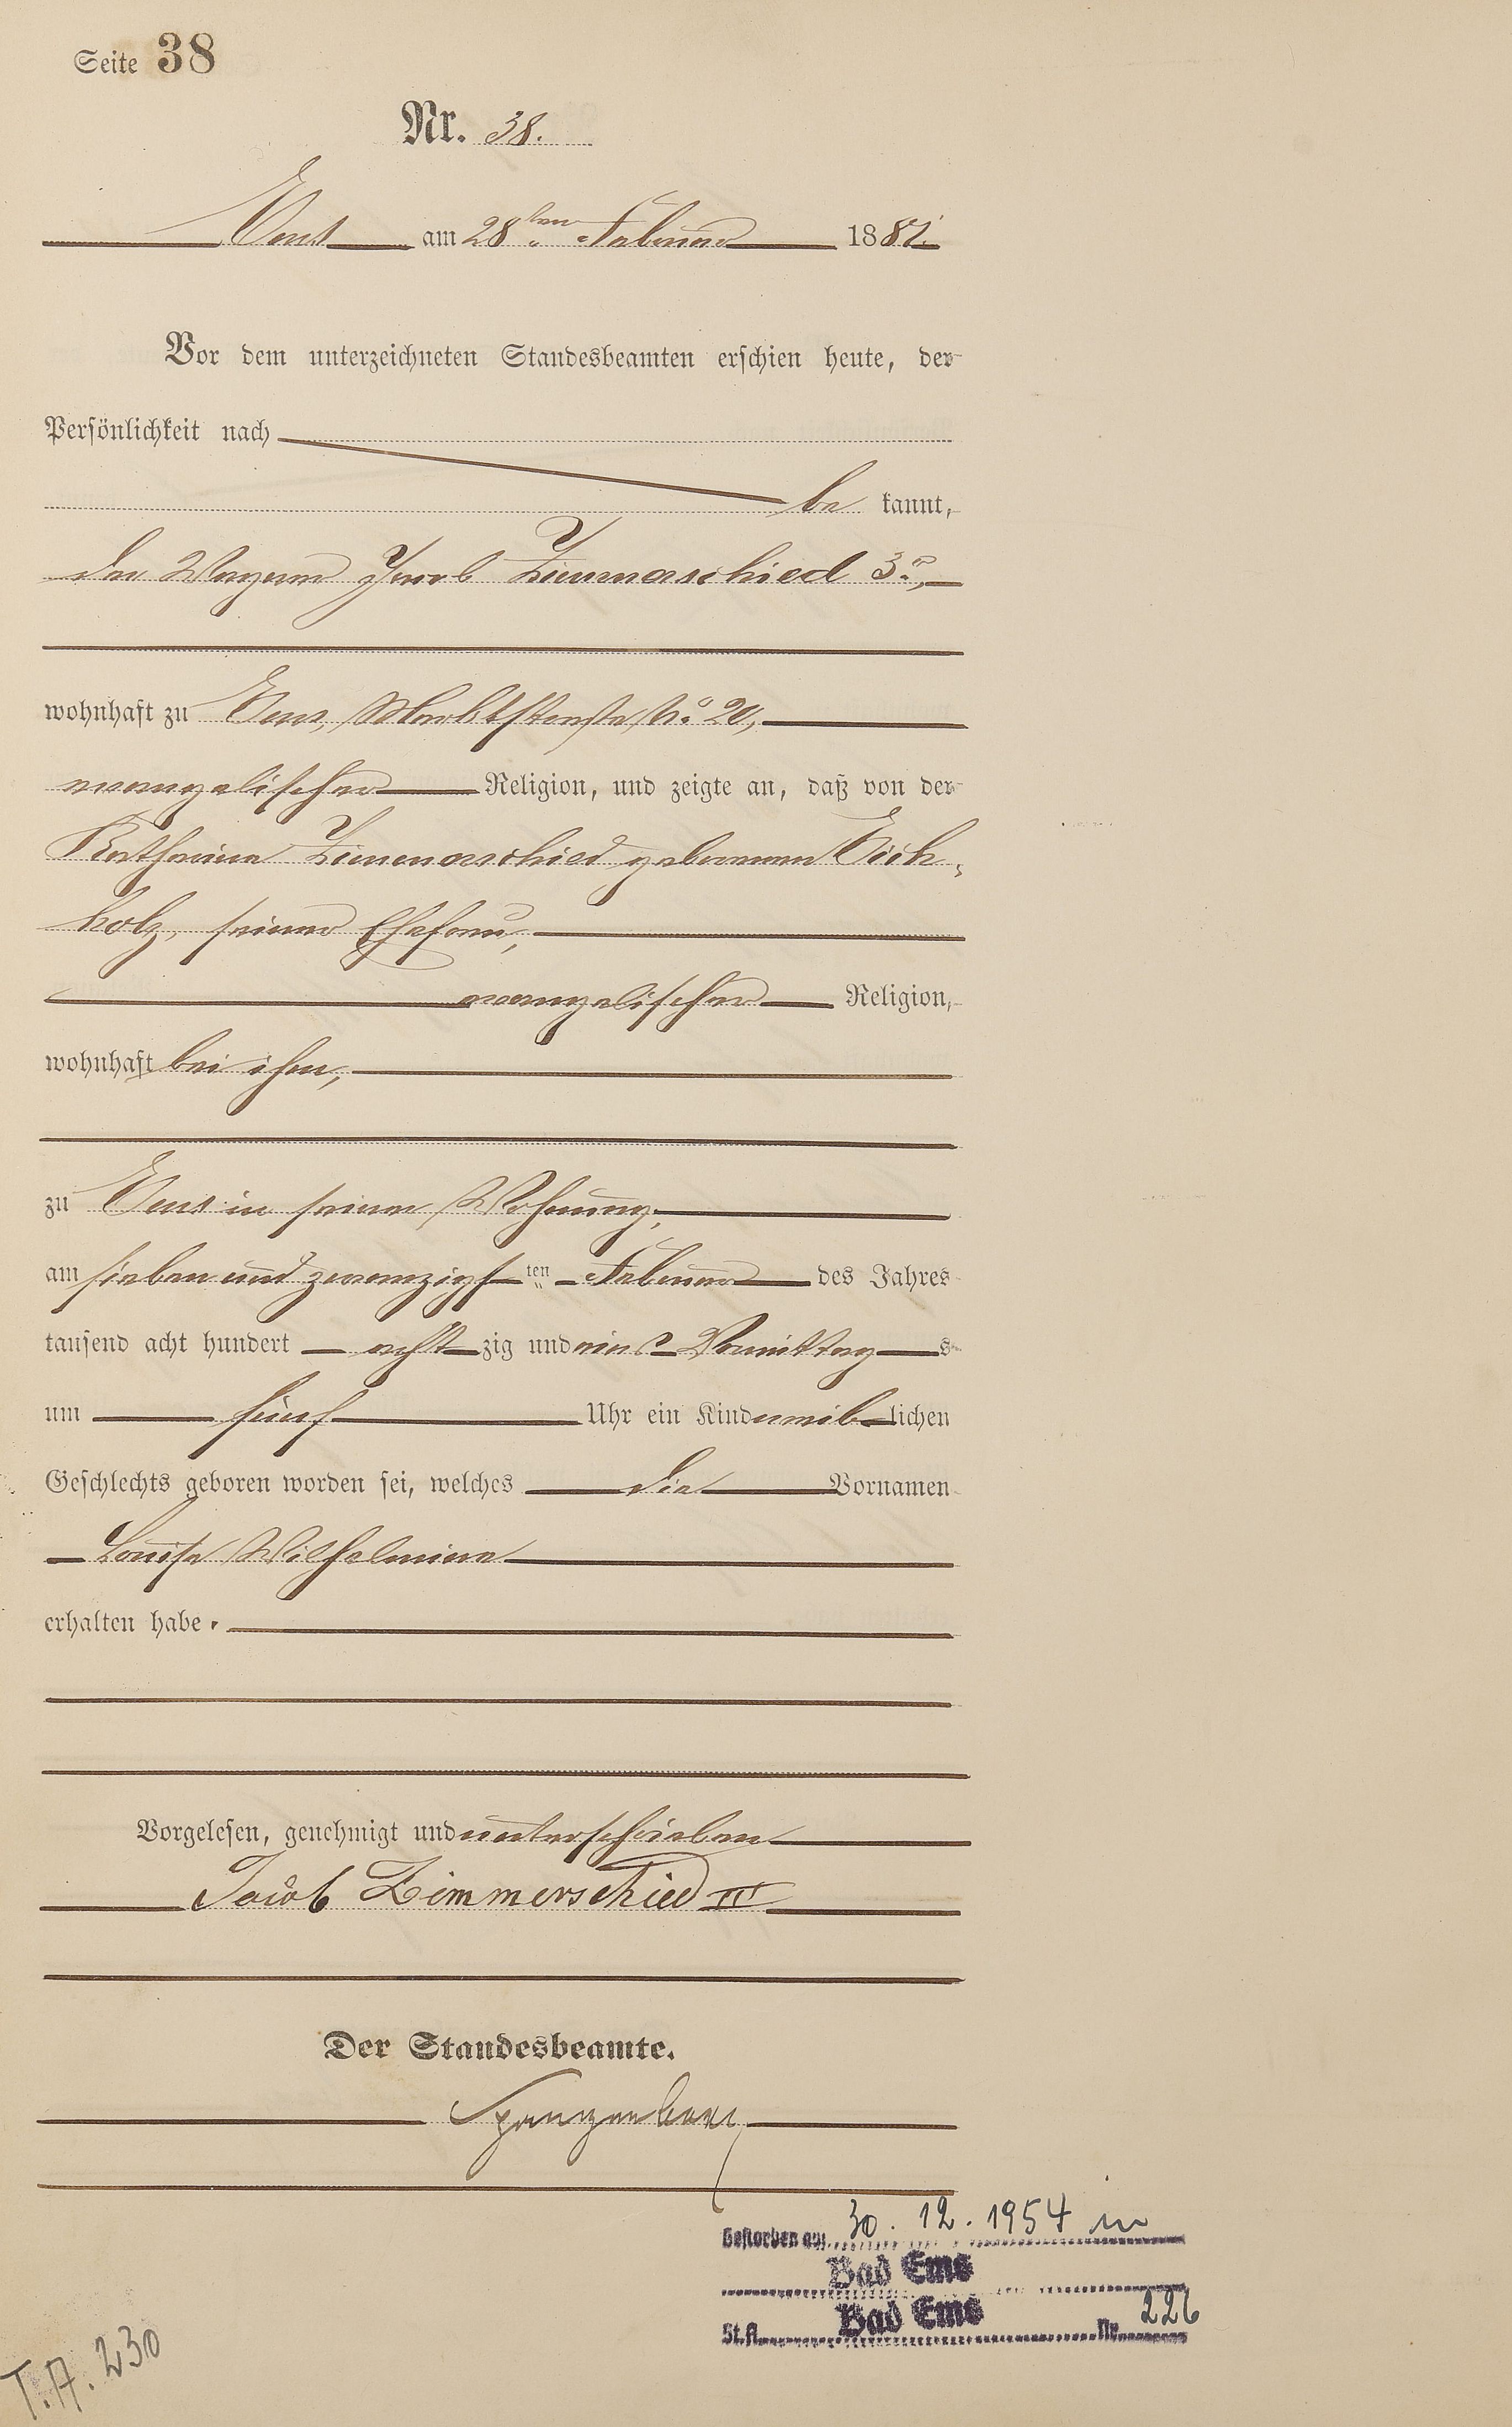 Seite 38
Nr. 38.
Ems am 28ten Februar 1881.
Vor dem unterzeichneten Standesbeamten erschien heute, der
Persönlichkeit nach
be kannt,
der Wagner Jacob Zimmerschied 3r,
wohnhaft zu Ems, Marktstraße No 20,
evangelischer Religion, und zeigte an, daß von der
Katharina Zimmerschied geborenen Eich-
holz, seiner Ehefrau,
evangelischer Religion,
wohnhaft bei ihm,
zu Ems in seiner Wohnung,
am sieben und zwanzigsten Februar des Jahres
tausend acht hundert achtzig und eins Vormittags
um fünf Uhr ein Kind weiblichen
Geschlechts geboren worden sei, welches die Vornamen
Louise Wilhelmine
erhalten habe.
Vorgelesen, genehmigt und unterschrieben
Jacob Zimmerschied III
Der Standesbeamte.
Spangenberg
Gestorben am 30. 12. 1954 in
Bad Ems
St.A. Bad Ems Nr. 226
T.A. 230